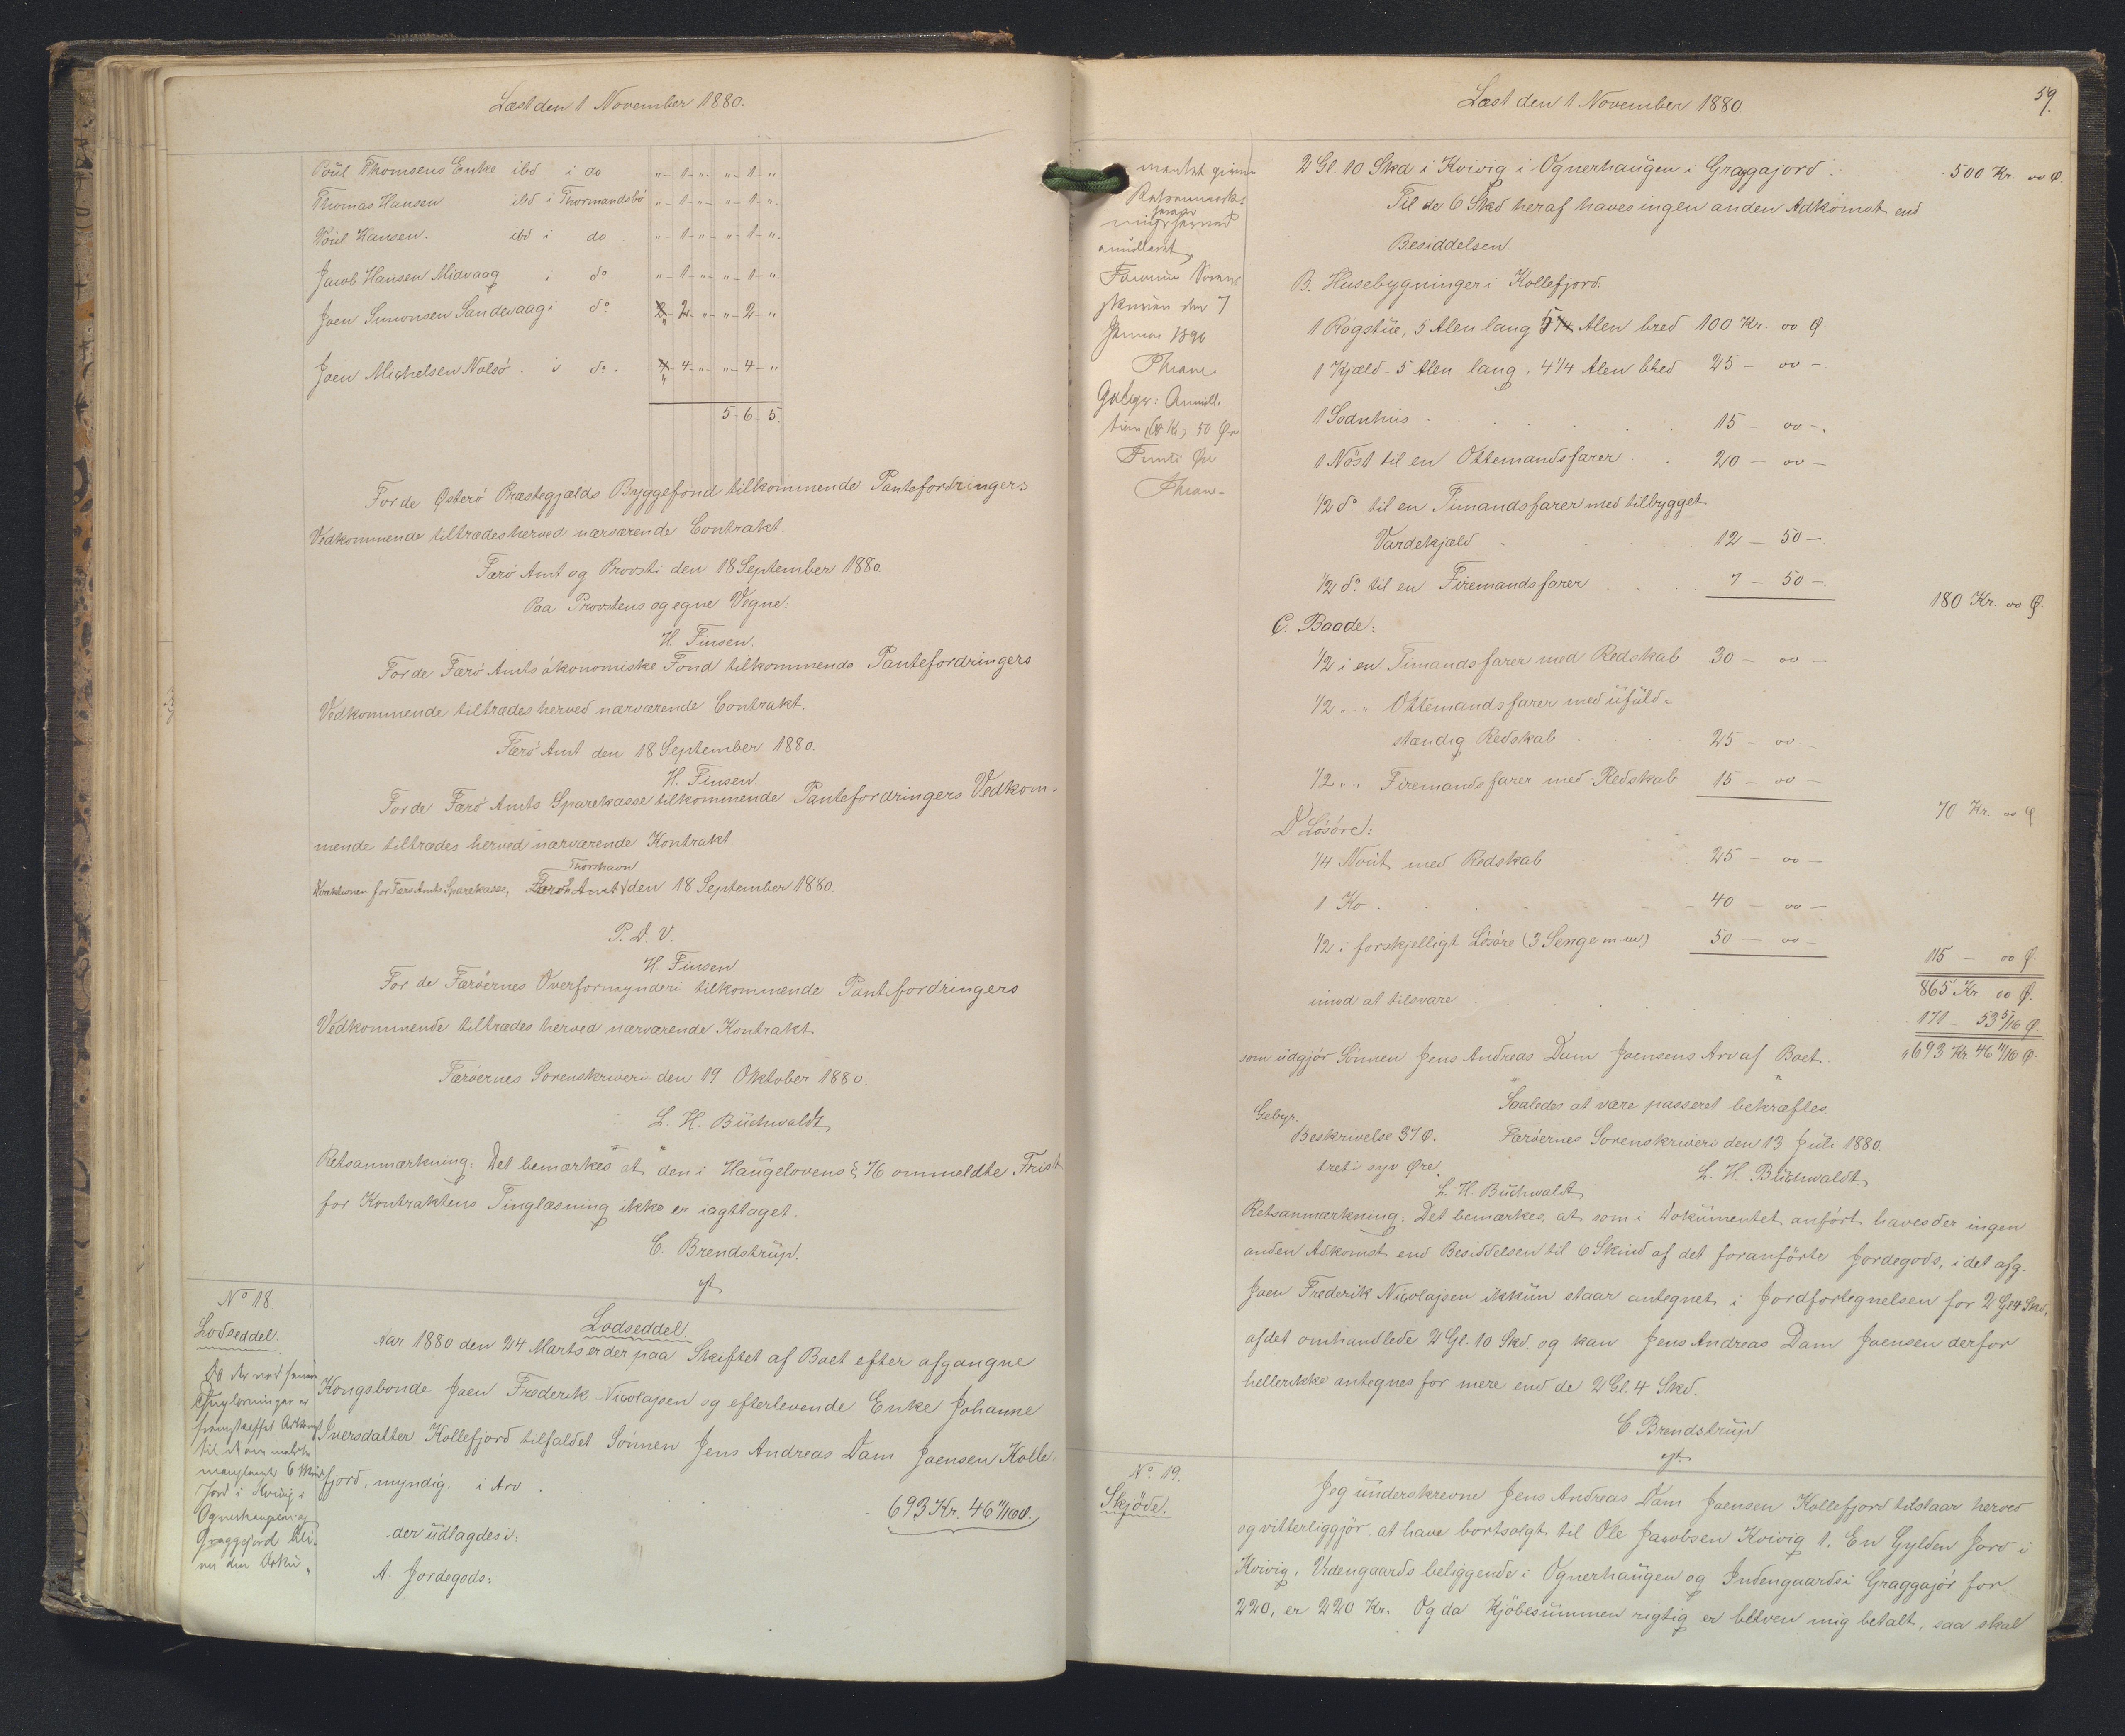 Læst den 1 November 1880.
Poül Thomsens Enke ibd i do „ - 1 - „ - „ - 1 - „
Thomas Hansen ibd i Thormandsbö „ - 1 - „ - „ - 1 - „
Poül Hansen. ibd i do „ - 1 - „ - „ - 1 - „
Jacob Hansen Midvaag i do „ - 1 - „ - „ - 1 - „
Joen Simonsen Sandevaag i do 2 - „ - „ - 2 - „
Joen Michelsen Nolsö. i do. 4 - „ - „ - 4 - „
5 - 6 - 5.
For de Østerö Præstegjælds Byggefond tilkommende Pantefordringers
Vedkommende tiltrædes herved nærværende Contrakt.
Færö Amt og Provsti den 18 September 1880.
Paa Provstens og egne Vegne:
H. Finsen.
For de Færö Amts ökonomiske Fond tilkommende Pantefordringers
Vedkommende tiltrædes herved nærværende Contrakt.
Færö Amt den 18 September 1880.
H. Finsen
For de Færö Amts Sparekasse tilkommende Pantefordringers Vedkom-
mende tiltrædes herved nærværende Kontrakt.
Thorshavn
Direktionen for Færö Amts Sparekasse, Færö Amt den 18 September 1880.
P. D. V.
H. Finsen
For de Færöernes Overformynderi tilkommende Pantefordringers
Vedkommende tiltrædes herved nærværende Kontrakt.
Færöernes Sorenskriveri den 19 Oktober 1880.
L. H. Büchwaldt
Retsanmærkning: Det bemærkes at den i Haugelovens § 76 ommeldte Frist
for Kontraktens Tinglæsning ikke er iagttaget.
C. Brendstrüp.
cst.
No 18.
Lodseddel.
Lodseddel.
Aar 1880 den 24 Marts er der paa Skiftet af Boet efter afgangne
Kongsbonde Joen Frederik Nicolajsen og efterlevende Enke Johanne
Iversdatter, Kollefjord tilfaldet Sönnen Jens Andreas Dam Joensen Kolle-
fjord, myndig, i Arv 693 Kr. 46 11/16 Ø.
der üdlagdes i:
A. Jordegods:
Da der ved senere
Thinglæsninger er
fremskaffet Adkomst
til de ommeldte
manglende 6 Skind
Jord i Kvivig i
Ognerhaugen og
Graggejord bli-
ver den Doku-
Læst den 1 November 1880.
59.
mentet givne
Retsanmærk-
ning herved
annulleret
Færöernes Sorens-
skriveri den 7
Januar 1896
Thrane
Gebyr: Annulla-
tion 50 Øre
Femti Øre
Thrane
2 Gl. 10 Skd i Kvivig i Ognerhaügen i Graggajord. 500 Kr. 00 Ø.
Til de 6 Skd heraf haves ingen anden Adkomst end
Besiddelsen.
B. Husebygninger i Kollefjord.
1 Rögstüe, 5 Alen lang 5 Alen bred 100 Kr. 00 Ø.
1 Kjæld - 5 Alen lang, 4 1/4 Alen bred 25 - 00 -.
1 Sodnhüs 15 - 00 -.
1 Nöst til en Ottemandsfarer 20 - 00 -
1/2 do. til en Timandsfarer med tilbygget
Vardekjæld 12 - 50 -.
1/2 do. til en Firemandsfarer 7 - 50 -.
180 Kr. 00 Ø.
C. Baade:
1/2 i en Timandsfarer med Redskab 30 - 00 -
1/2 „ „ Ottemandsfarer med üfüld-
stændig Redskab 25 - 00 -
1/2 „ „ Firemandsfarer med Redskab 15 - 00 -
70 Kr. 00 Ø
D. Lösöre:
1/4 Noüt med Redskab 25 - 00 -
1 Ko 40 - 00 -
1/2 i forskjelligt Lösöre (3 Senge m.m) 50 - 00 -
115 - 00 Ø.
865 Kr. 00 Ø.
imod at tilsvare 171 - 53 5/16 Ø.
som üdgjör Sönnen Jens Andreas Dam Joensens Arv af Boet. 693 Kr. 46 11/16 Ø.
Saaledes at være passeret bekræftes.
Gebyr.
Beskrivelse 37 Ø. Færöernes Sorenskriveri den 13 Jüli 1880.
treti syv Øre.
L. H. Büchwaldt.
L. H. Büchwaldt
Retsanmærkning: Det bemærkes, at som i Dokümentet anfört haves der ingen
anden Adkomst end Besiddelsen til 6 Skind af det foranförte Jordegods, idet afg.
Joen Frederik Nicolajsen ikkün staar antegnet i Jordfortegnelsen for 2 Gl. 4 Skd.
af det omhandlede 2 Gl. 10 Skd. og kan Jens Andreas Dam Joensen derfor
heller ikke antegnes for mere end de 2 Gl. 4 Skd.
C. Brendstrüp
cst.
No. 19.
Skjöde.
Jeg ünderskrevne Jens Andreas Dam Joensen Kollefjord tilstaar herved
og vitterliggjör, at have bortsolgt til Ole Jacobsen Kvivig 1. En Gylden Jord i
Kvivig, Udengaards beliggende i Ognerhaügen og Indengaards i Graggajör for
220, er 220 Kr. Og da Kjöbesümmen rigtig er bleven mig betalt, saa skal